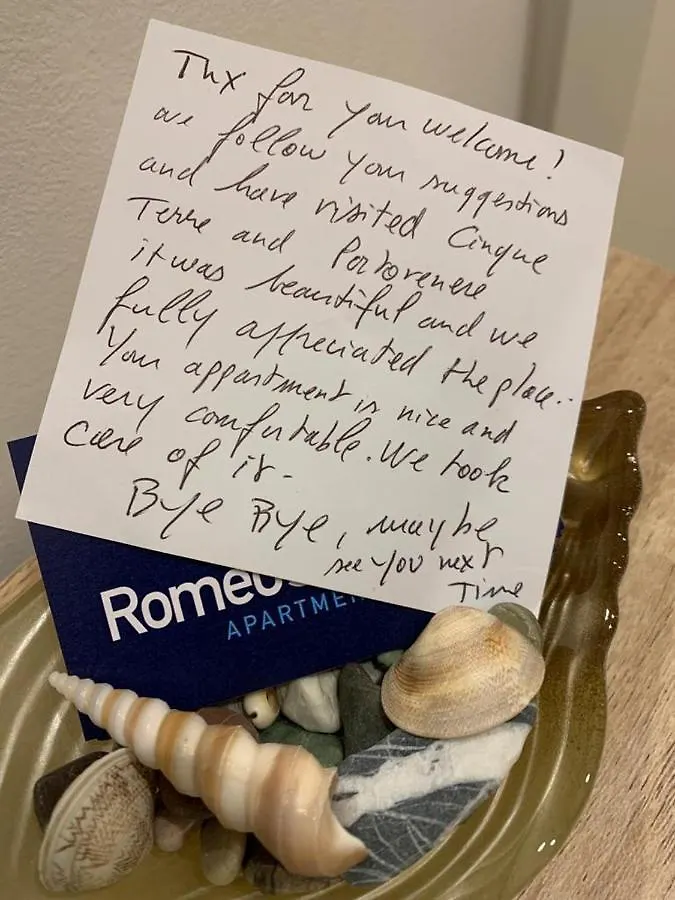 Thx for you welcome!
we follow your suggestions
and have visited Cinque
Terre and Portovenere
it was beautiful and we
fully appreciated the place..
Your appartment is nice and
very comfortable. We took
care of it-
Bye Bye, maybe
see you next
Time
Romeo
APARTME